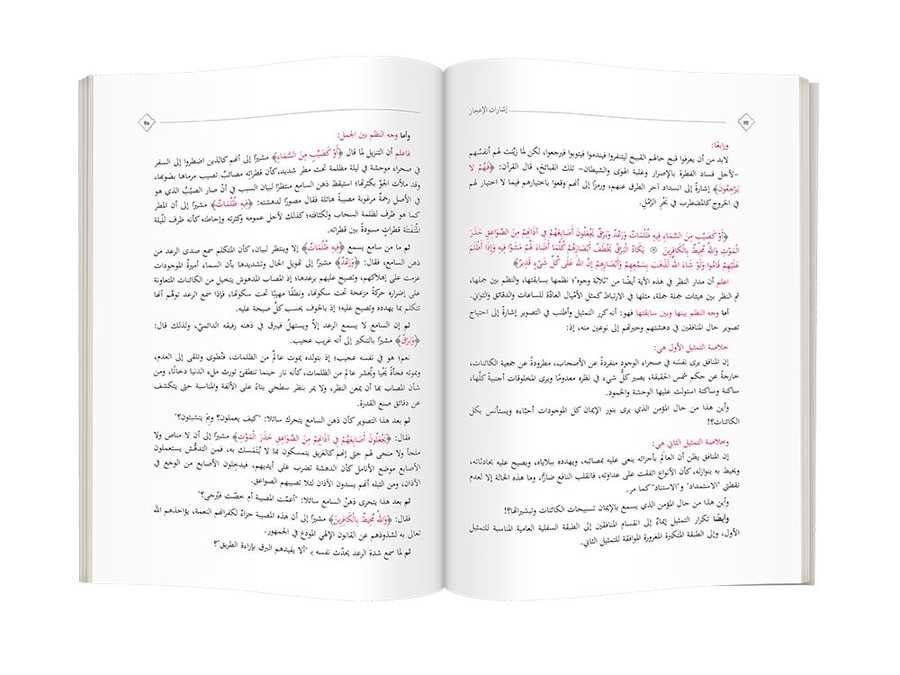 إشارات الإعجاز
ورابعًا:
لابد من أن يعرفوا قبح حالهم القبيح ليتنفروا فيندموا فيتوبوا فيرجعوا، لكن لما زيّنت لهم أنفسهم
-لأجل فساد الفطرة بالإصرار وغلبة الهوى والشيطان- تلك القبائح، قال القرآن: ﴿فَهُمْ لا
يَرْجِعُونَ﴾ إشارةً إلى انسداد آخر الطرق عنهم، ورمزًا إلى أنهم وقعوا باختيارهم فيما لا اختيار لهم
في الخروج كالمضطرب في بحر الرّمل.
﴿أَوْ كَصَيِّبٍ مِنَ السَّمَاءِ فِيهِ ظُلُمَاتٌ وَرَعْدٌ وَبَرْقٌ يَجْعَلُونَ أَصَابِعَهُمْ فِي آذَانِهِمْ مِنَ الصَّوَاعِقِ حَذَرَ
الْمَوْتِ وَاللهُ مُحِيطٌ بِالْكَافِرِينَ ۞ يَكَادُ الْبَرْقُ يَخْطَفُ أَبْصَارَهُمْ كُلَّمَا أَضَاءَ لَهُمْ مَشَوْا فِيهِ وَإِذَا أَظْلَمَ
عَلَيْهِمْ قَامُوا وَلَوْ شَاءَ اللهُ لَذَهَبَ بِسَمْعِهِمْ وَأَبْصَارِهِمْ إِنَّ اللهَ عَلَى كُلِّ شَيْءٍ قَدِيرٌ﴾
اعلم أن مدار النظر في هذه الآية أيضًا من "ثلاثة وجوه": نظمها بسابقتها، والنظم بين جملها،
ثم النظر بين هيئات جملة جملة، مثلها في الارتباط كمثل الأميال العادّة للساعات والدقائق والثواني.
أما وجه النظم بينها وبين سابقتها فهو: أنه كرر التمثيل وأطنب في التصوير إشارةً إلى احتياج
تصوير حال المنافقين في دهشتهم وحيرتهم إلى نوعين منه، إذ:
خلاصة التمثيل الأول هي:
إن المنافق يرى نفسه في صحراء الوجود منفردةً عن الأصحاب، مطرودةً عن جمعية الكائنات،
خارجة عن حكم شمس الحقيقة، يصير كلّ شيء في نظره معدومًا ويرى المخلوقات أجنبيةً كلّها،
ساكتة وساكنة استولت عليها الوحشة والخمود.
وأين هذا من حال المؤمن الذي يرى بنور الإيمان كل الموجودات أحبّاءه ويستأنس بكل
الكائنات؟!
وخلاصة التمثيل الثاني هي:
إن المنافق يظن أن العالم بأجزائه ينعى عليه بمصائبه، ويهدده ببلاياه، ويصيح عليه بحادثاته،
ويحيط به بنوازله، كأن الأنواع اتفقت على عداوته، فانقلب النافع ضارًّا، وما هذه الحالة إلا لعدم
نقطتي "الاستمداد" و"الاستناد" كما مر.
وأين هذا من حال المؤمن الذي يسمع بالإيمان تسبيحات الكائنات وتبشيراتها؟!
وأيضًا تكرار التمثيل إيماءً إلى انقسام المنافقين إلى الطبقة السفلية العامية المناسبة للتمثيل
الأول، وإلى الطبقة المتكبرة المغرورة الموافقة للتمثيل الثاني.
وأما وجه النظم بين الجمل:
فاعلم أن التنزيل لما قال ﴿أَوْ كَصَيِّبٍ مِنَ السَّمَاءِ﴾ مشيرًا إلى أنهم كالذين اضطروا إلى السفر
في صحراء موحشة في ليلة مظلمة تحت مطر شديد، كأن قطراته مصائب تصيب مرماها بصوتها،
وقد ملأت الجوّ بكثرتها؛ استيقظ ذهن السامع منتظرًا لبيان السبب في أنّ صار الصيّبُ الذي هو
في الأصل رحمةٌ مرغوبة مصيبةً هائلة فقال مصورًا لدهشته: ﴿فِيهِ ظُلُمَاتٌ﴾ مشيرًا إلى أن المطر
كما هو ظرف لظلمة السحاب ولكثافته؛ كذلك لأجل عمومه وكثرته وإحاطته كأنه ظرف لليلة
المُتَفَتِّتَة قطراتٍ مسودةً بين قطراته.
ثم ما من سامع يسمع ﴿فِيهِ ظُلُمَاتٌ﴾ إلا وينتظر لبيان، كأن المتكلم سمع صدى الرعد من
ذهن السامع، فقال: ﴿وَرَعْدٌ﴾ مشيرًا إلى تهويل الحال وتشديدها بأن السماء أميرةُ الموجودات
عزمت على إهلاكهم، وتصيح عليهم برعدها؛ إذ المصاب المدهوش يتخيل من الكائنات المتعاونة
على إضراره حركةً مزعجة تحت سكونها، ونطقًا مهيبًا تحت سكوتها، فإذا سمع الرعد توهّم أنها
تتكلم بما يهدده وتصيح عليه؛ إذ بالخوف يحسب كلّ صيحة عليه.
ثم إن السامع لا يسمع الرعد إلاّ ويستهلّ فيبرق في ذهنه رفيقه الدائميّ، ولذلك قال:
﴿وَبَرْقٌ﴾ مشيرًا بالتنكير إلى أنه غريب عجيب.
نعم! هو في نفسه عجيب؛ إذ بتولده يموت عالمٌ من الظلمات، فتُطوى وتلقى إلى العدم،
وبموته فجأةً يَحْيا ويُحشر عالم من الظلمات، كأنه نار حينما تنطفئ تورث ملء الدنيا دخانًا، ومن
شأن المصاب بها أن يمعن النظر، ولا يمر بنظر سطحي بناءً على الألفة والمناسبة حتى ينكشف
عن دقائق صنع القدرة.
ثم بعد هذا التصوير كأن ذهن السامع يتحرك سائلا: "كيف يعملون؟ وبِمَ يتشبثون؟"
فقال: ﴿يَجْعَلُونَ أَصَابِعَهُمْ فِي آذَانِهِمْ مِنَ الصَّوَاعِقِ حَذَرَ الْمَوْتِ﴾ مشيرًا إلى أن لا مناص ولا
ملجأ ولا منجى لهم حتى إنهم كالغريق يتمسكون بما لا يُتَمَسك به، فمن التدهّش يستعملون
الأصابع موضع الأنامل كأن الدهشة تضرب على أيديهم، فيدخِلون الأصابع من الوجع في
الآذان، ومن البَلَه أنهم يسدون الآذان لئلا تصيبهم الصواعق.
ثم بعد هذا يتحرى ذهنُ السامع سائلا: "أعَمَّت المصيبة أم خصّت فيُرجى؟"
فقال: ﴿وَاللهُ مُحِيطٌ بِالْكَافِرِينَ﴾ مشيرًا إلى أن هذه المصيبة جزاءٌ لكفرانهم النعمة، يؤاخذهم الله
تعالى به لشذوذهم عن القانون الإلهي المودع في الجمهور.
ثم لما سمع شدة الرعد يحدّث نفسه بـ "ألا يفيدهم البرق بإراءة الطريق"؟